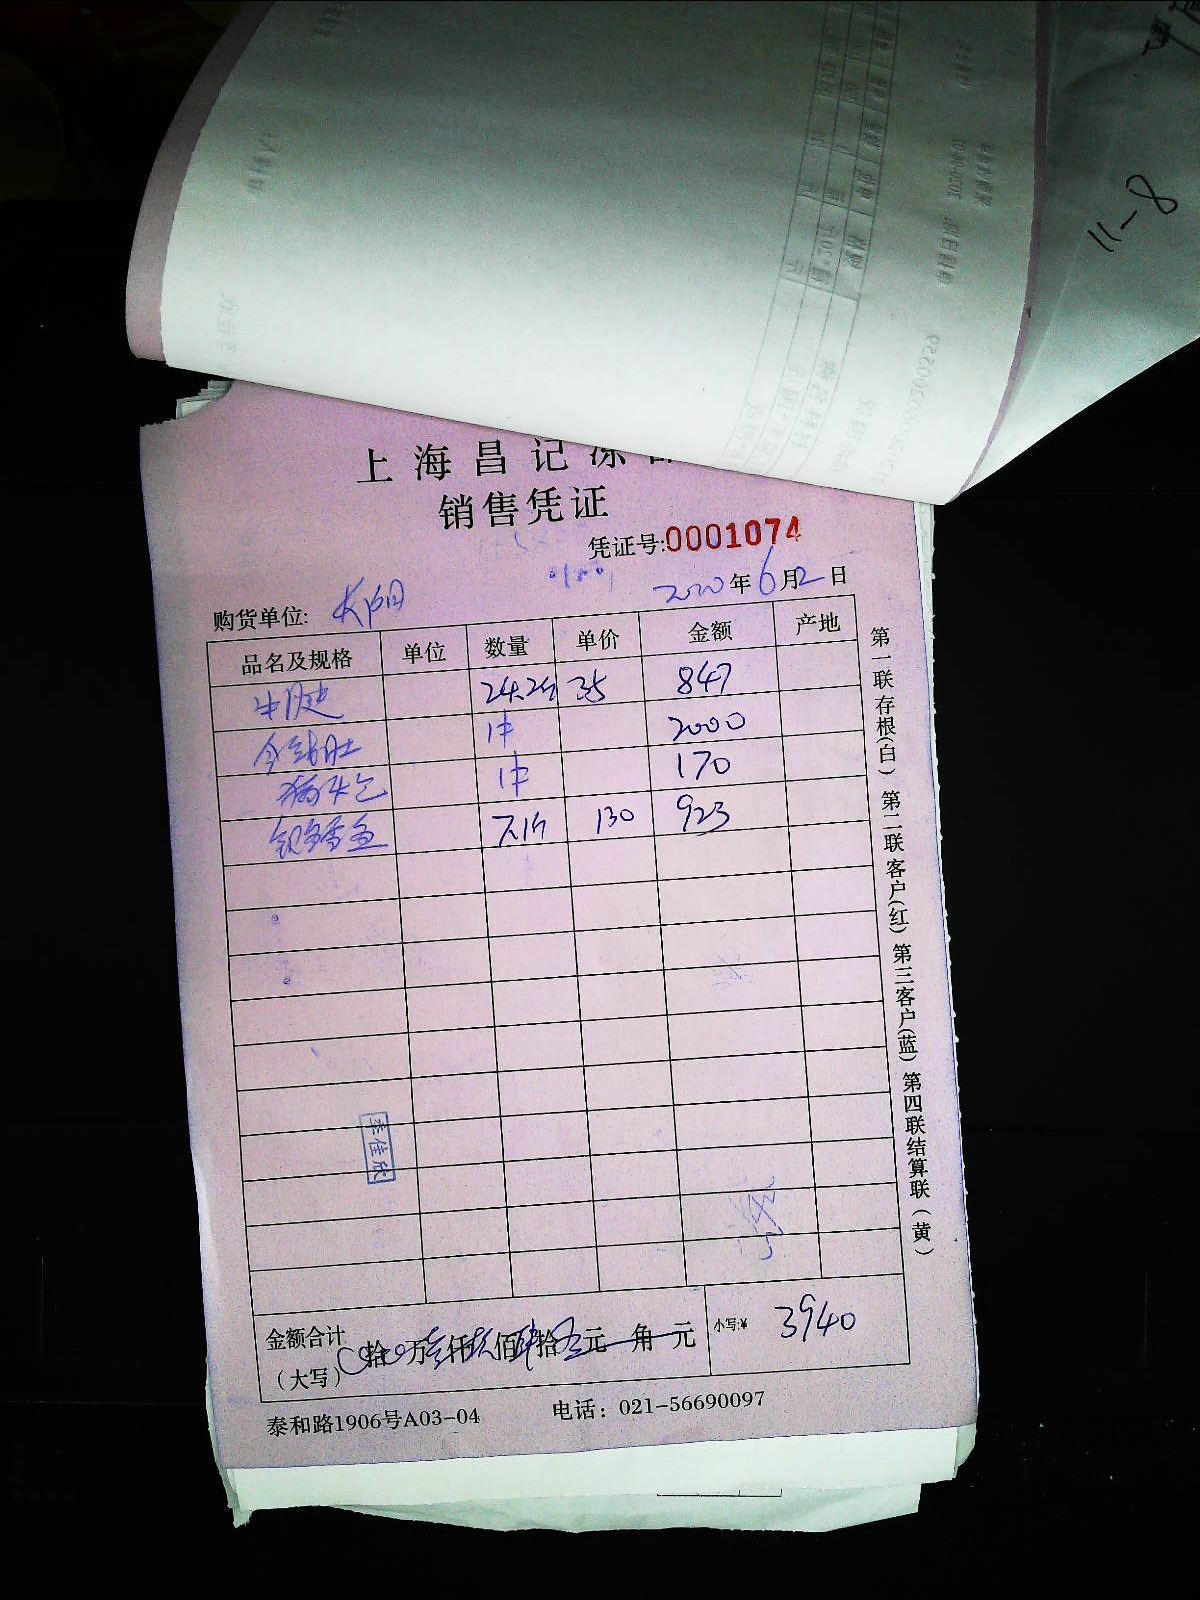 11-8
上海昌记冻
销售凭证
凭证号:0001074
2020年6月2日
购货单位:
品名及规格 单位 数量 单价 金额 产地
牛腱 24.2斤 35 847
金钱肚 1件 2000
1件 170
银鳕鱼 7.1斤 130 923
李佳欣
金额合计(大写) 拾 万叁仟玖佰肆拾 元 角 元 小写:¥ 3940
泰和路1906号A03-04 电话: 021-56690097
第一联存根(白) 第二联客户(红) 第三客户(蓝) 第四联结算联(黄)